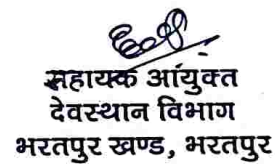 सहायक आंयुक्त
देवस्थान विभाग
भरतपुर खण्ड, भरतपुर